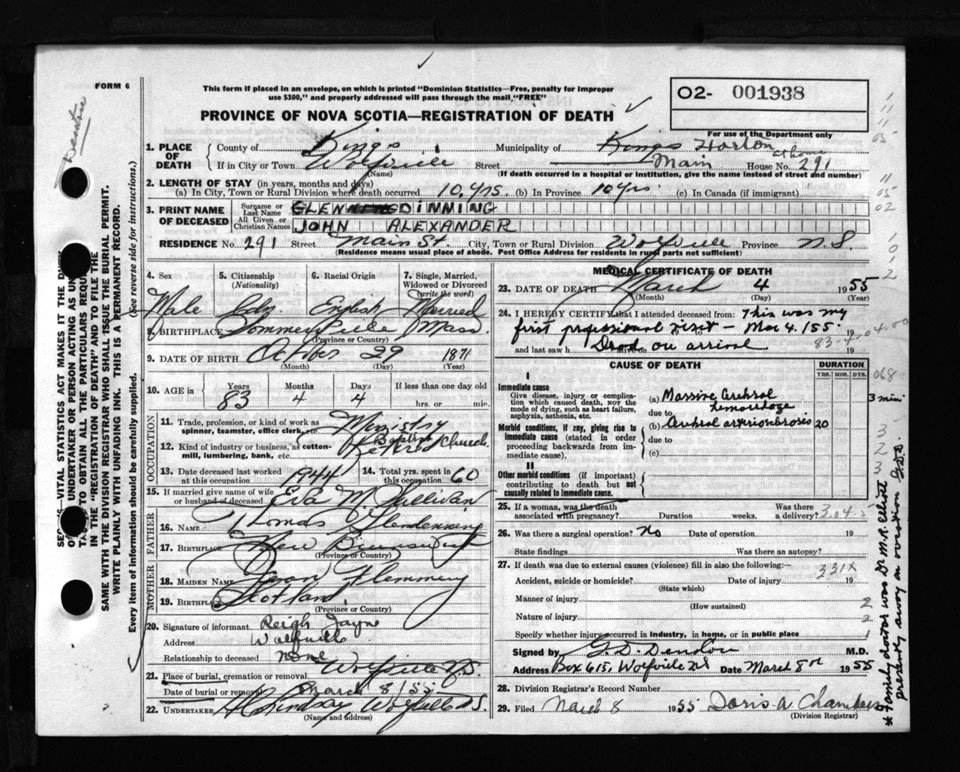 FORM 6
This form if placed in an envelope, on which is printed "Dominion Statistics—Free, penalty for improper
use $300," and properly addressed will pass through the mail, "FREE"
PROVINCE OF NOVA SCOTIA—REGISTRATION OF DEATH
O2- 001938
For use of the Department only
1. PLACE OF DEATH
County of Kings Municipality of Kings Horton
If in City or Town Wolfville Street Main House No. 291
at home
(Name) (If death occurred in a hospital or institution, give the name instead of street and number)
2. LENGTH OF STAY (in years, months and days)
(a) In City, Town or Rural Division where death occurred 10 yrs. (b) In Province 10 yrs (c) In Canada (if immigrant)
3. PRINT NAME OF DECEASED
Surname or Last Name GLEN DINNING
All Given or Christian Names JOHN ALEXANDER
RESIDENCE No. 291 Street Main St. City, Town or Rural Division Wolfville Province N.S.
(Residence means usual place of abode. Post Office Address for residents in rural parts not sufficient)
4. Sex
Male
5. Citizenship
(Nationality)
Cdn.
6. Racial Origin
English
7. Single, Married,
Widowed or Divorced
(write the word)
Married
8. BIRTHPLACE Mass.
(Province or Country)
9. DATE OF BIRTH October 29 1871
(Month) (Day) (Year)
10. AGE in
Years Months Days If less than one day old
83 4 4 hrs. or min.
OCCUPATION
11. Trade, profession, or kind of work as
spinner, teamster, office clerk, etc. Ministry
12. Kind of industry or business, as cotton-
mill, lumbering, bank, etc. Baptist Church
Retired
13. Date deceased last worked
at this occupation 1944
14. Total yrs. spent in
this occupation 60
15. If married give name of wife
or husband of deceased Eva M Sullivan
FATHER
16. NAME Thomas Glendenning
17. BIRTHPLACE New Brunswick
(Province or Country)
MOTHER
18. MAIDEN NAME Flemming
19. BIRTHPLACE Scotland
(Province or Country)
20. Signature of informant Reigh Jayne
Address Wolfville
Relationship to deceased None
21. Place of burial, cremation or removal Wolfville N.S.
Date of burial or removal March 8/55
22. UNDERTAKER H Lindsay Wolfville N.S.
(Name and address)
MEDICAL CERTIFICATE OF DEATH
23. DATE OF DEATH March 4 1955
(Month) (Day) (Year)
24. I HEREBY CERTIFY that I attended deceased from: This was my
first professional visit - Mar 4/55. 19
and last saw h Dead on arrival 19
CAUSE OF DEATH
DURATION
YRS. MOS. DYS.
I
Immediate cause
Give disease, injury or complica-
tion which caused death, not the
mode of dying, such as heart failure,
asphyxia, asthenia, etc.
(a) Massive Cerebral
hemorrhage 3 min
due to
Morbid conditions, if any, giving rise to
immediate cause (stated in order
proceeding backwards from im-
mediate cause)
(b) Cerebral arteriosclerosis 20
due to
(c)
II
Other morbid conditions (if important)
contributing to death but not
causally related to immediate cause.
25. If a woman, was the death
associated with pregnancy? Duration weeks. Was there
a delivery?
26. Was there a surgical operation? No Date of operation 19
State findings Was there an autopsy?
27. If death was due to external causes (violence) fill in also the following:—
Accident, suicide or homicide? Date of injury 19
(State which)
Manner of injury
(How sustained)
Nature of injury
Specify whether injury occurred in industry, in home, or in public place
Signed by G. D. Denton M.D.
Address Box 615, Wolfville NS Date March 8th 1955
28. Division Registrar's Record Number
29. Filed March 8 1955 Doris A Chambers
(Division Registrar)
331X
068
* Family doctor was Dr M.R. Elliott
presently away on vacation G.D.D.
SAME WITH THE DIVISION REGISTRAR WHO SHALL ISSUE THE BURIAL PERMIT.
IN THE "REGISTRATION OF DEATH" AND TO FILE THE
WRITE PLAINLY WITH UNFADING INK. THIS IS A PERMANENT RECORD.
Every item of information should be carefully supplied. (See reverse side for instructions.)